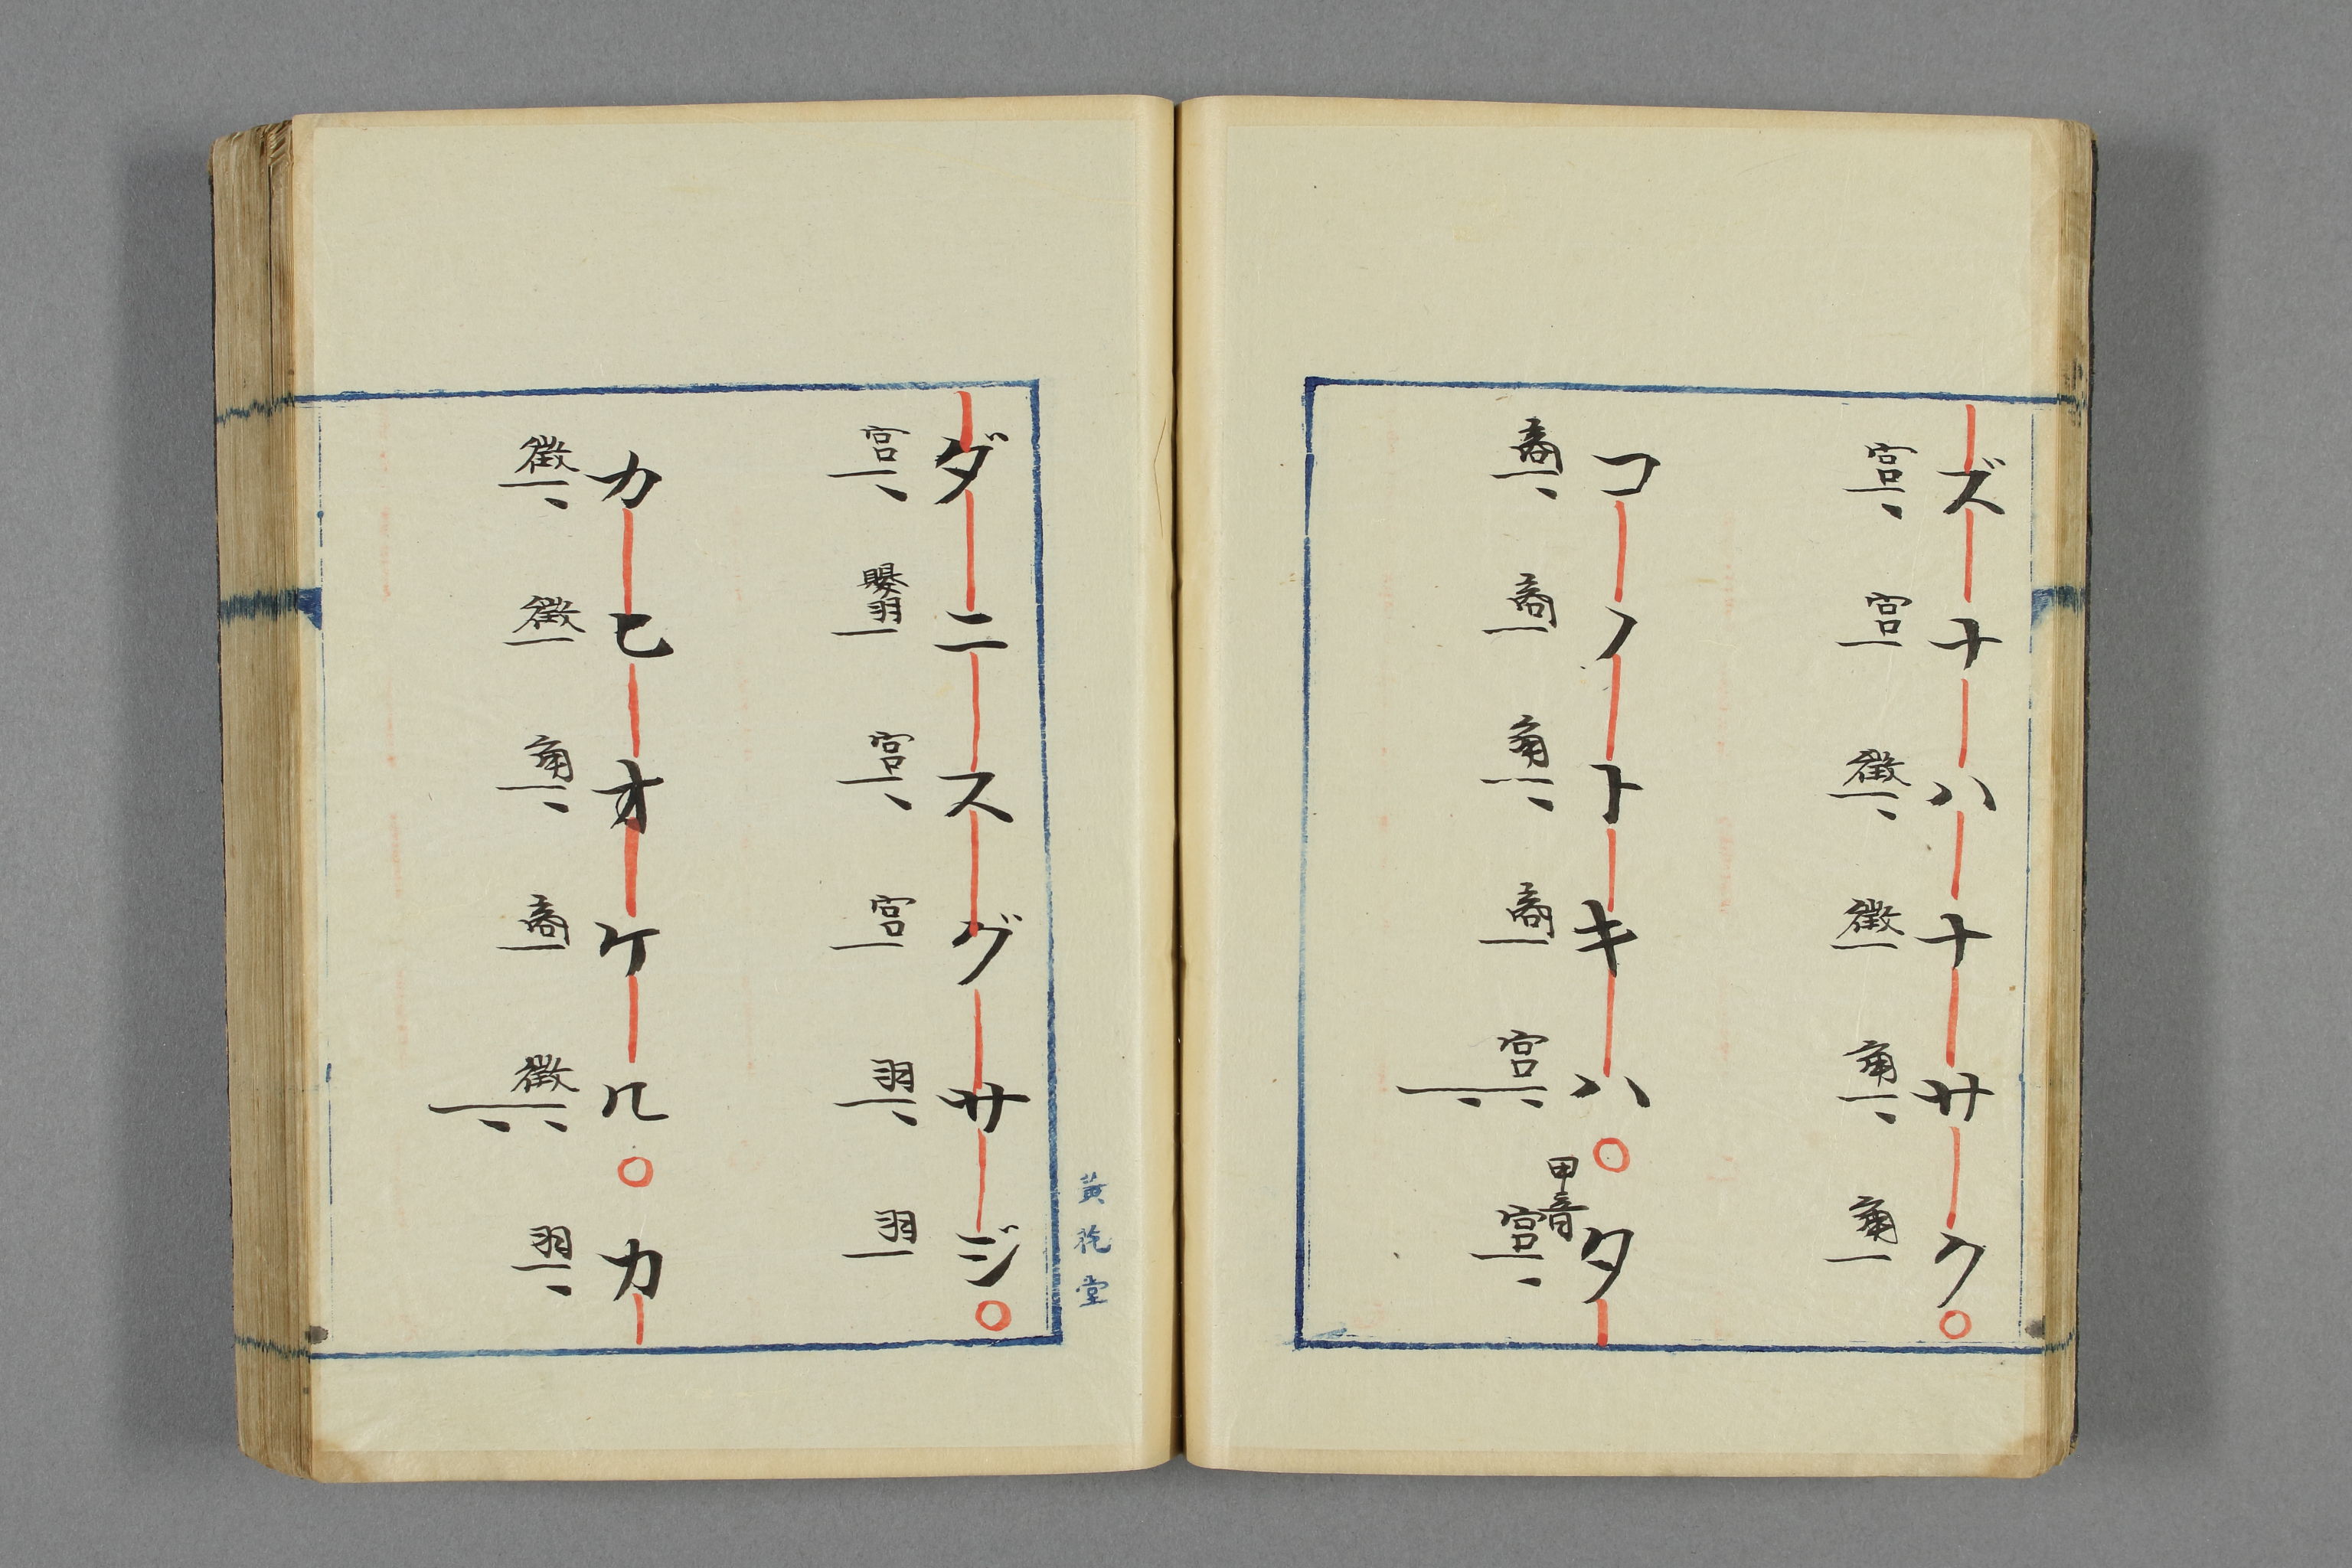 ズナハナサク○
宮 宮 徴 徴 角 角
コノトキハ○タ
商 商 角 商 宮 甲音 宮
黄 堂
ダニスグサジ○
宮 嬰羽 宮 宮 羽 羽
カヒオケル○カ
徴 徴 角 商 徴 羽